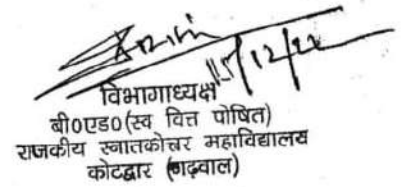 15/12/22
विभागाध्यक्ष
बी०एड०(स्व वित्त पोषित)
राजकीय स्नातकोत्तर महाविद्यालय
कोटद्वार (गढ़वाल)